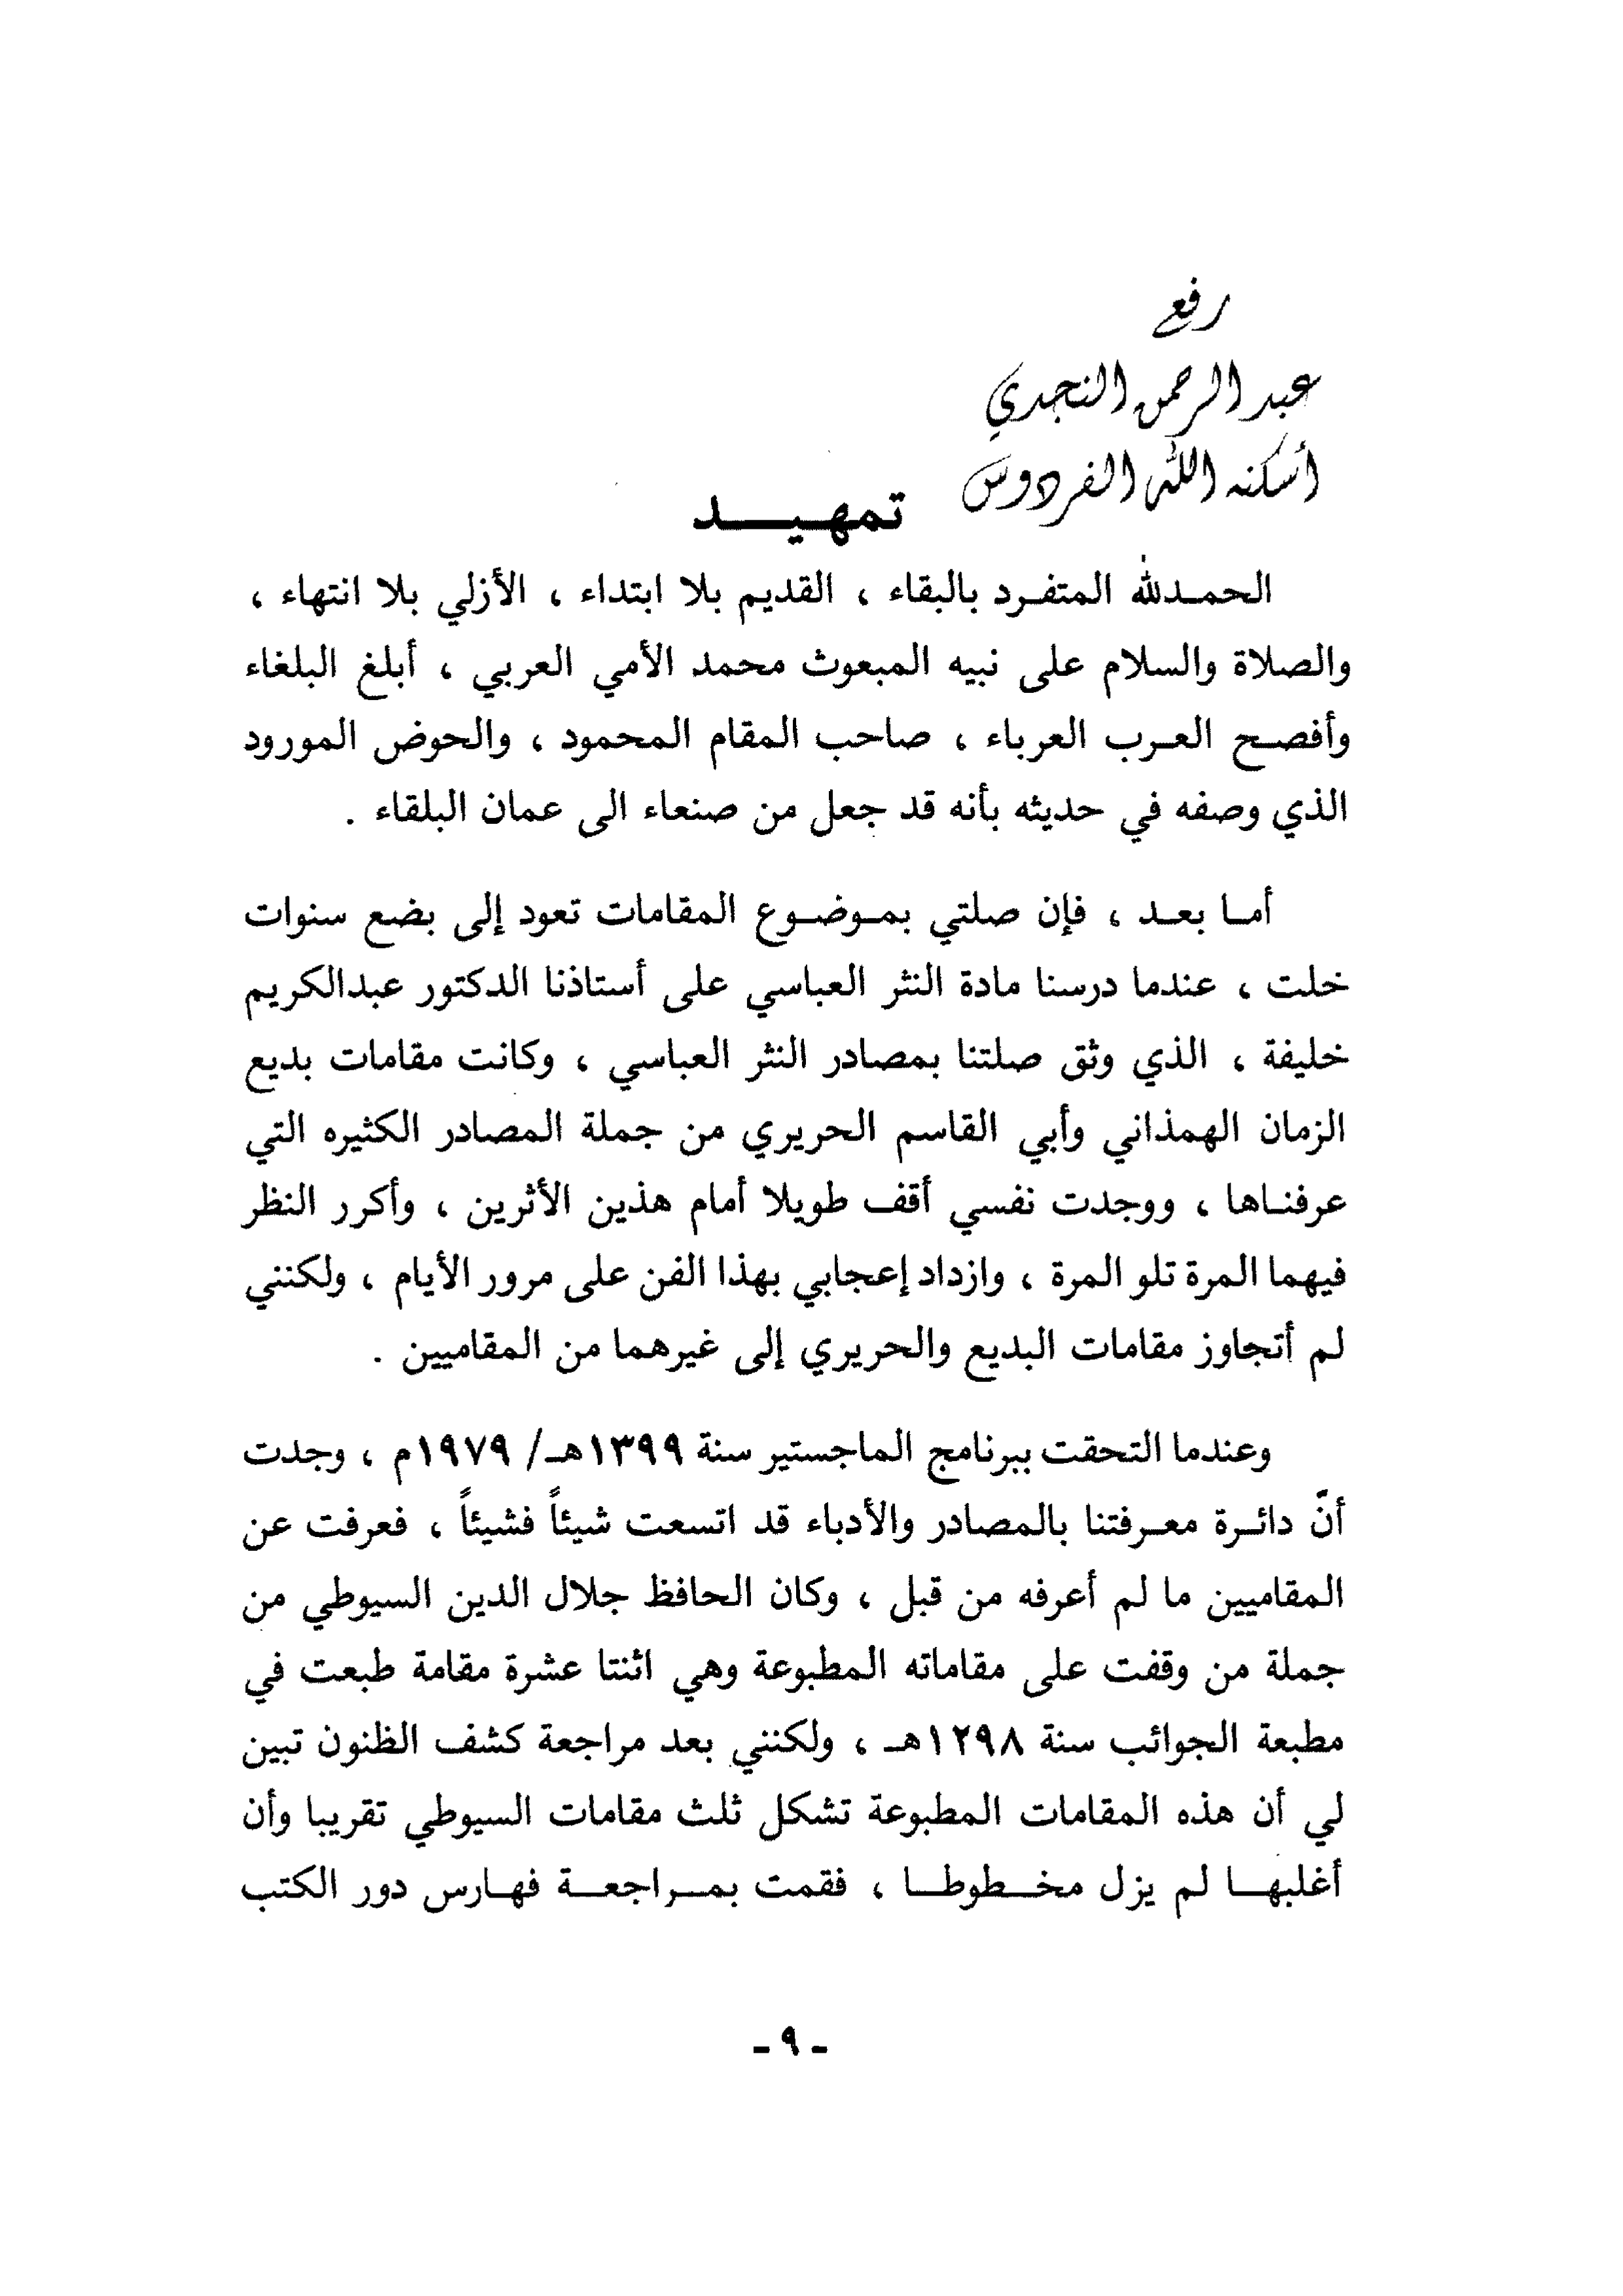 رفع
عبد الرحمن النجدي
أسكنه الله الفردوس
تمهيد
الحمدلله المتفرد بالبقاء ، القديم بلا ابتداء ، الأزلي بلا انتهاء ،
والصلاة والسلام على نبيه المبعوث محمد الأمي العربي ، أبلغ البلغاء
وأفصح العرب العرباء ، صاحب المقام المحمود ، والحوض المورود
الذي وصفه في حديثه بأنه قد جعل من صنعاء الى عمان البلقاء .
أما بعد ، فإن صلتي بموضوع المقامات تعود إلى بضع سنوات
خلت ، عندما درسنا مادة النثر العباسي على أستاذنا الدكتور عبدالكريم
خليفة ، الذي وثق صلتنا بمصادر النثر العباسي ، وكانت مقامات بديع
الزمان الهمذاني وأبي القاسم الحريري من جملة المصادر الكثيره التي
عرفناها ، ووجدت نفسي أقف طويلا أمام هذين الأثرين ، وأكرر النظر
فيهما المرة تلو المرة ، وازداد إعجابي بهذا الفن على مرور الأيام ، ولكنني
لم أتجاوز مقامات البديع والحريري إلى غيرهما من المقاميين .
وعندما التحقت ببرنامج الماجستير سنة ١٣٩٩هـ/ ١٩٧٩م ، وجدت
أنّ دائرة معرفتنا بالمصادر والأدباء قد اتسعت شيئاً فشيئاً ، فعرفت عن
المقاميين ما لم أعرفه من قبل ، وكان الحافظ جلال الدين السيوطي من
جملة من وقفت على مقاماته المطبوعة وهي اثنتا عشرة مقامة طبعت في
مطبعة الجوائب سنة ١٢٩٨هـ ، ولكنني بعد مراجعة كشف الظنون تبين
لي أن هذه المقامات المطبوعة تشكل ثلث مقامات السيوطي تقريبا وأن
أغلبها لم يزل مخطوطا ، فقمت بمراجعة فهارس دور الكتب
- ٩ -